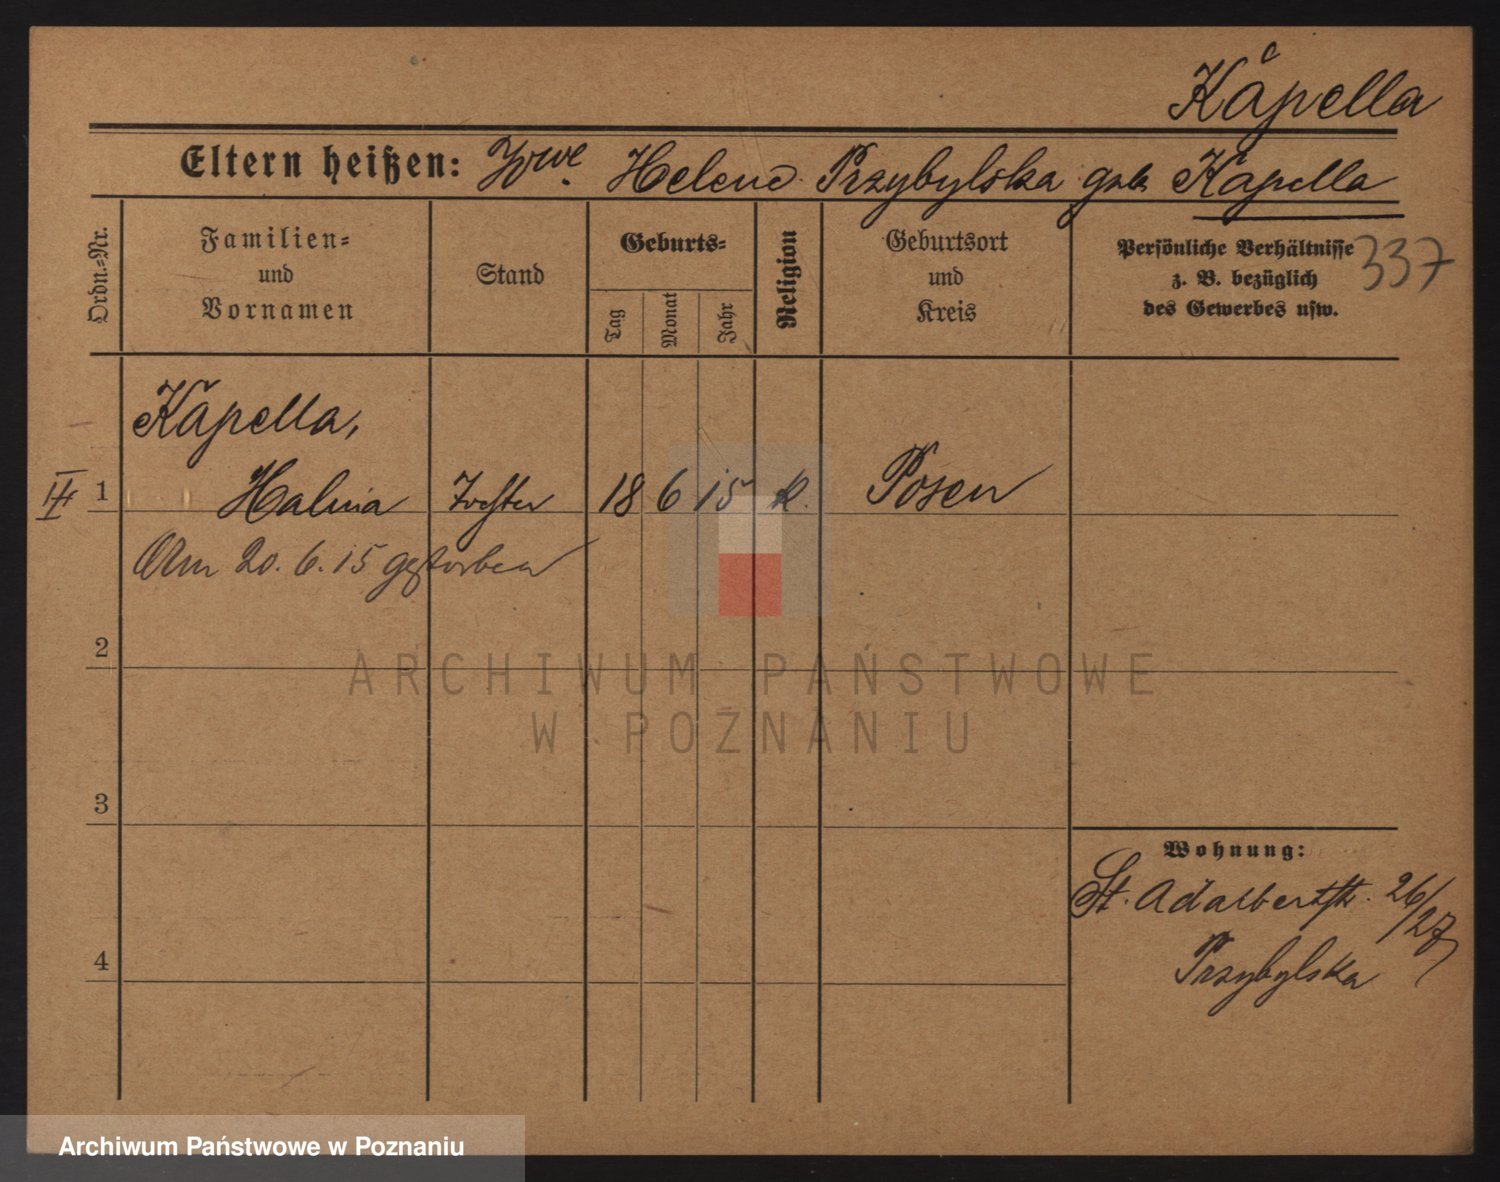 Kapella
Eltern heißen: Wwe. Helene Przybylska geb. Kapella
337
Ordn.-Nr.
Familien-
und
Vornamen
Stand
Geburts-
Tag
Monat
Jahr
Religion
Geburtsort
und
Kreis
Persönliche Verhältnisse
z. B. bezüglich
des Gewerbes usw.
Kapella,
1 Halina Tochter 18 6 15 k. Posen
Am 20. 6. 15 gestorben
2
3
4
Wohnung:
St. Adalbertstr. 26/27
Przybylska
ARCHIWUM PAŃSTWOWE
W POZNANIU
Archiwum Państwowe w Poznaniu